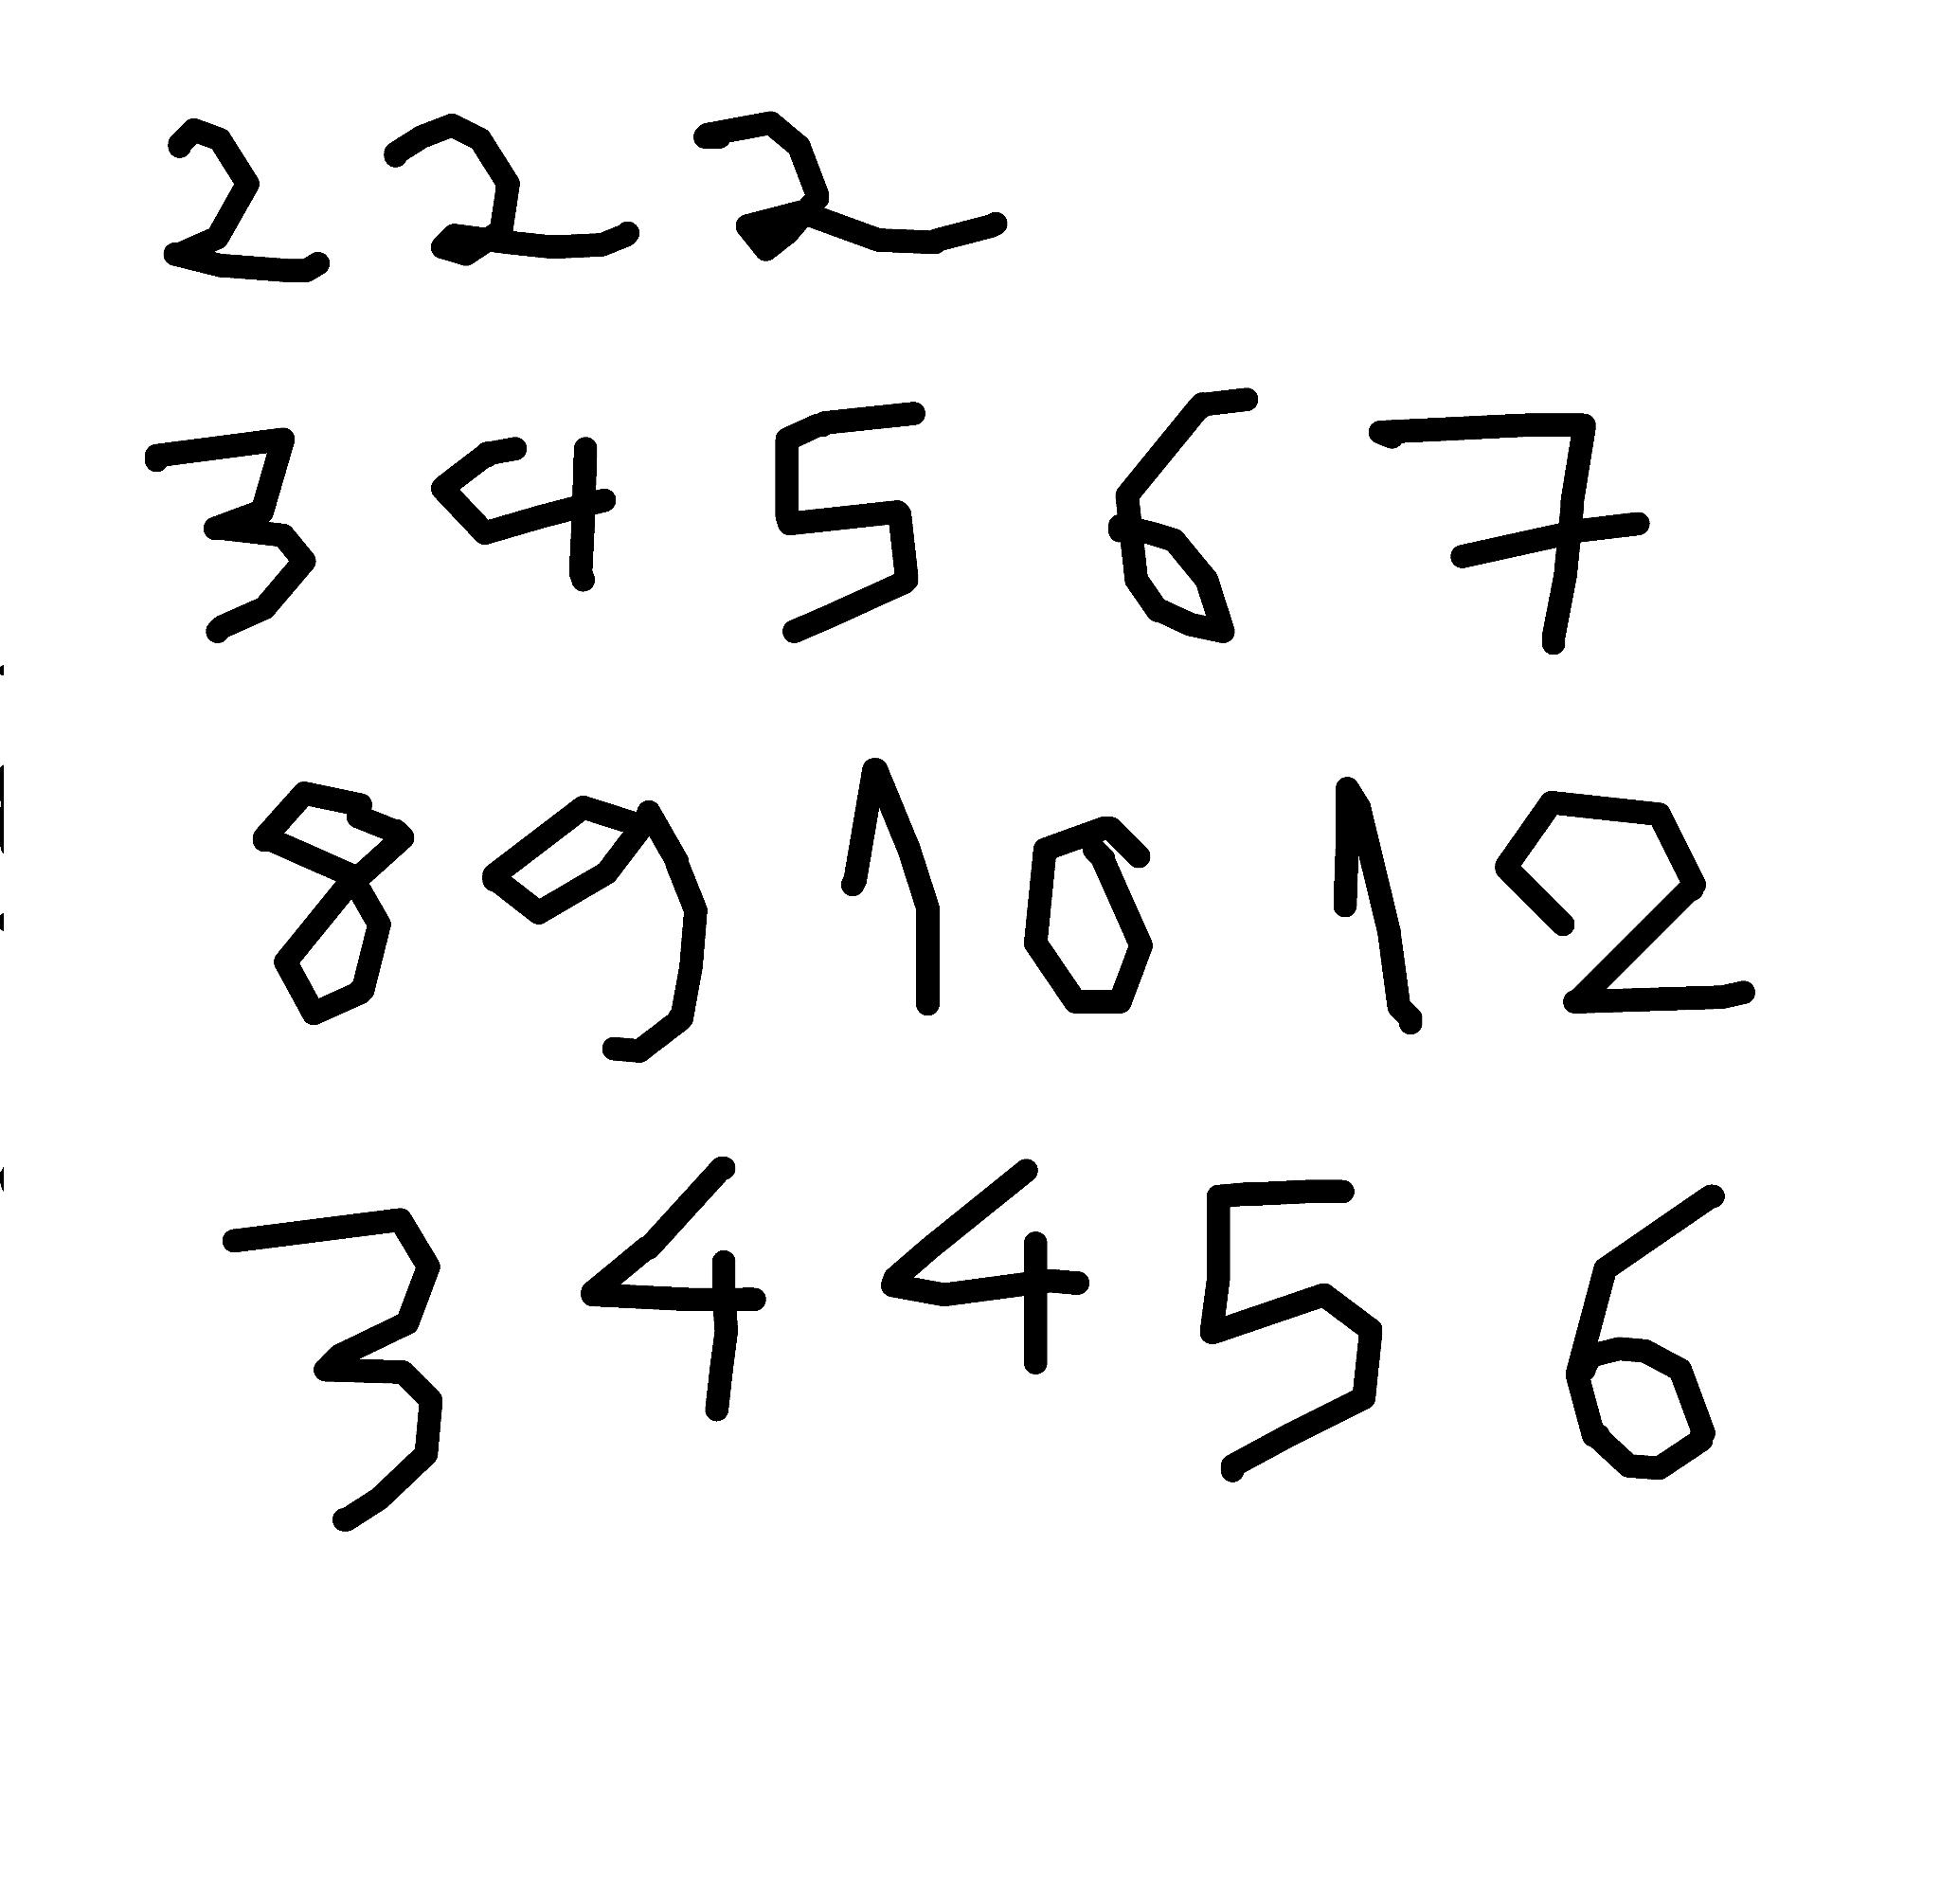 2 2 2
3 4 5 6 7
8 9 10 12
3 4 4 5 6